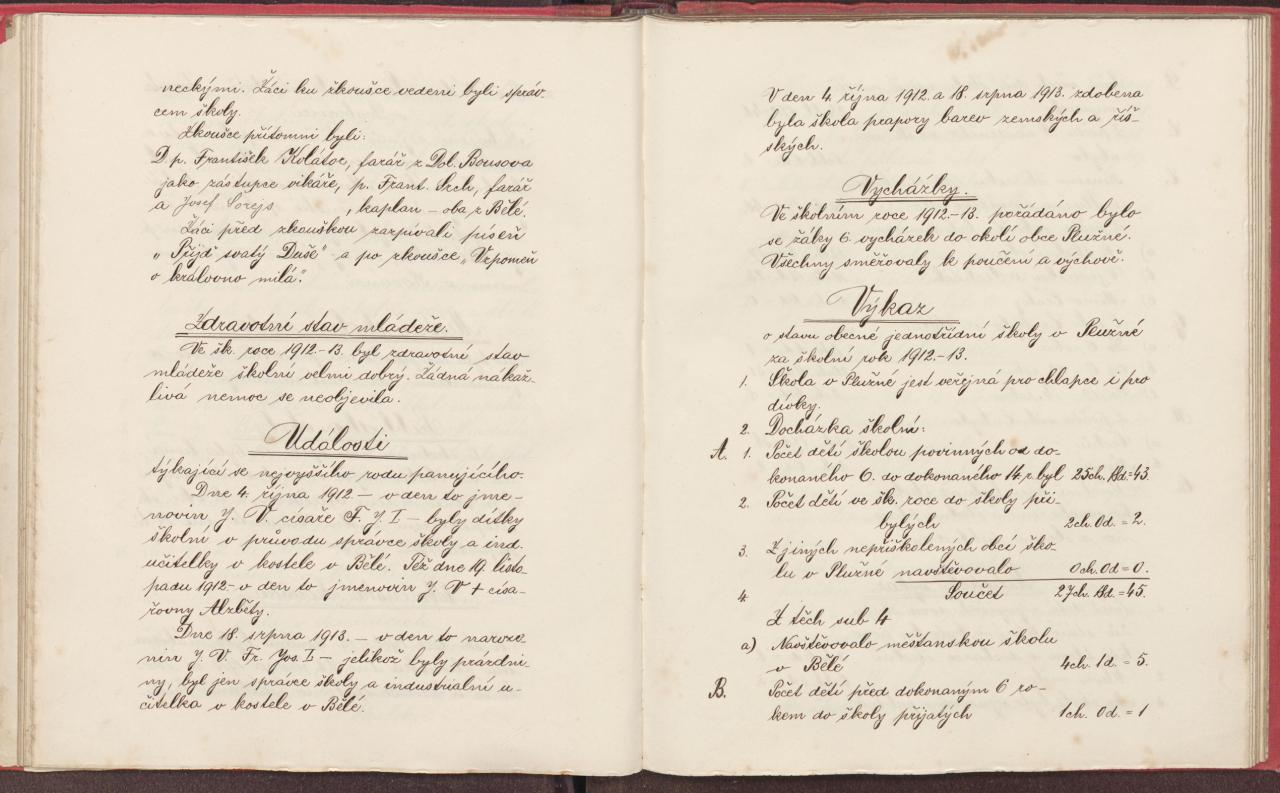 neckými. Žáci ku zkoušce vedeni byli správ-
cem školy.
Zkoušce přítomni byli:
D. p. František Kolátor, farář z Dol. Bousova
jako zástupce vikáře, p. Frant. Srch, farář
a Josef Sorejs, kaplan – oba z Bělé.
Žáci před zkouškou zazpívali píseň
„Přijď svatý Duše" a po zkoušce „Vzpomeň
o královno milá."
Zdravotní stav mládeže.
Ve šk. roce 1912.–13. byl zdravotní stav
mládeže školní velmi dobrý. Žádná nákaž-
livá nemoc se neobjevila.
Události
týkající se nejvyššího rodu panujícího.
Dne 4. října 1912 – v den to jme-
novin J. V. císaře F. J. I – byly dítky
školní v průvodu správce školy a ind.
učitelky v kostele v Bělé. Též dne 19. listo-
padu 1912 – v den to jmenovin J. V + císa-
řovny Alzběty.
Dne 18. srpna 1913. – v den to naroze-
nin J. V. Fr. Jos. I – jelikož byly prázdni-
ny, byl jen správce školy a industrialní u-
čitelka v kostele v Bělé.
V den 4. října 1912. a 18. srpna 1913. zdobena
byla škola prapory barev zemských a říš-
ských.
Vycházky.
Ve školním roce 1912.–13. pořádáno bylo
se žáky 6 vycházek do okolí obce Plužné.
Všechny směřovaly k poučení a výchově.
Výkaz
o stavu obecné jednotřídní školy v Plužné
za školní rok 1912.–13.
1. Škola v Plužné jest veřejná pro chlapce i pro
dívky.
2. Docházka školní:
A. 1. Počet dětí školou povinných od do-
konaného 6. do dokonaného 14. r. byl 25ch. 18d. = 43
2. Počet dětí ve šk. roce do školy při-
bylých 2ch. 0d. = 2.
3. Z jiných nepřiškolených obcí ško-
lu v Plužné navštěvovalo 0ch. 0d = 0.
4. Součet 27ch. 18d. = 45.
Z těch sub 4
a) Navštěvovalo měšťanskou školu
v Bělé 4ch. 1d. = 5.
B. Počet dětí před dokonaným 6 ro-
kem do školy přijatých 1ch. 0d. = 1